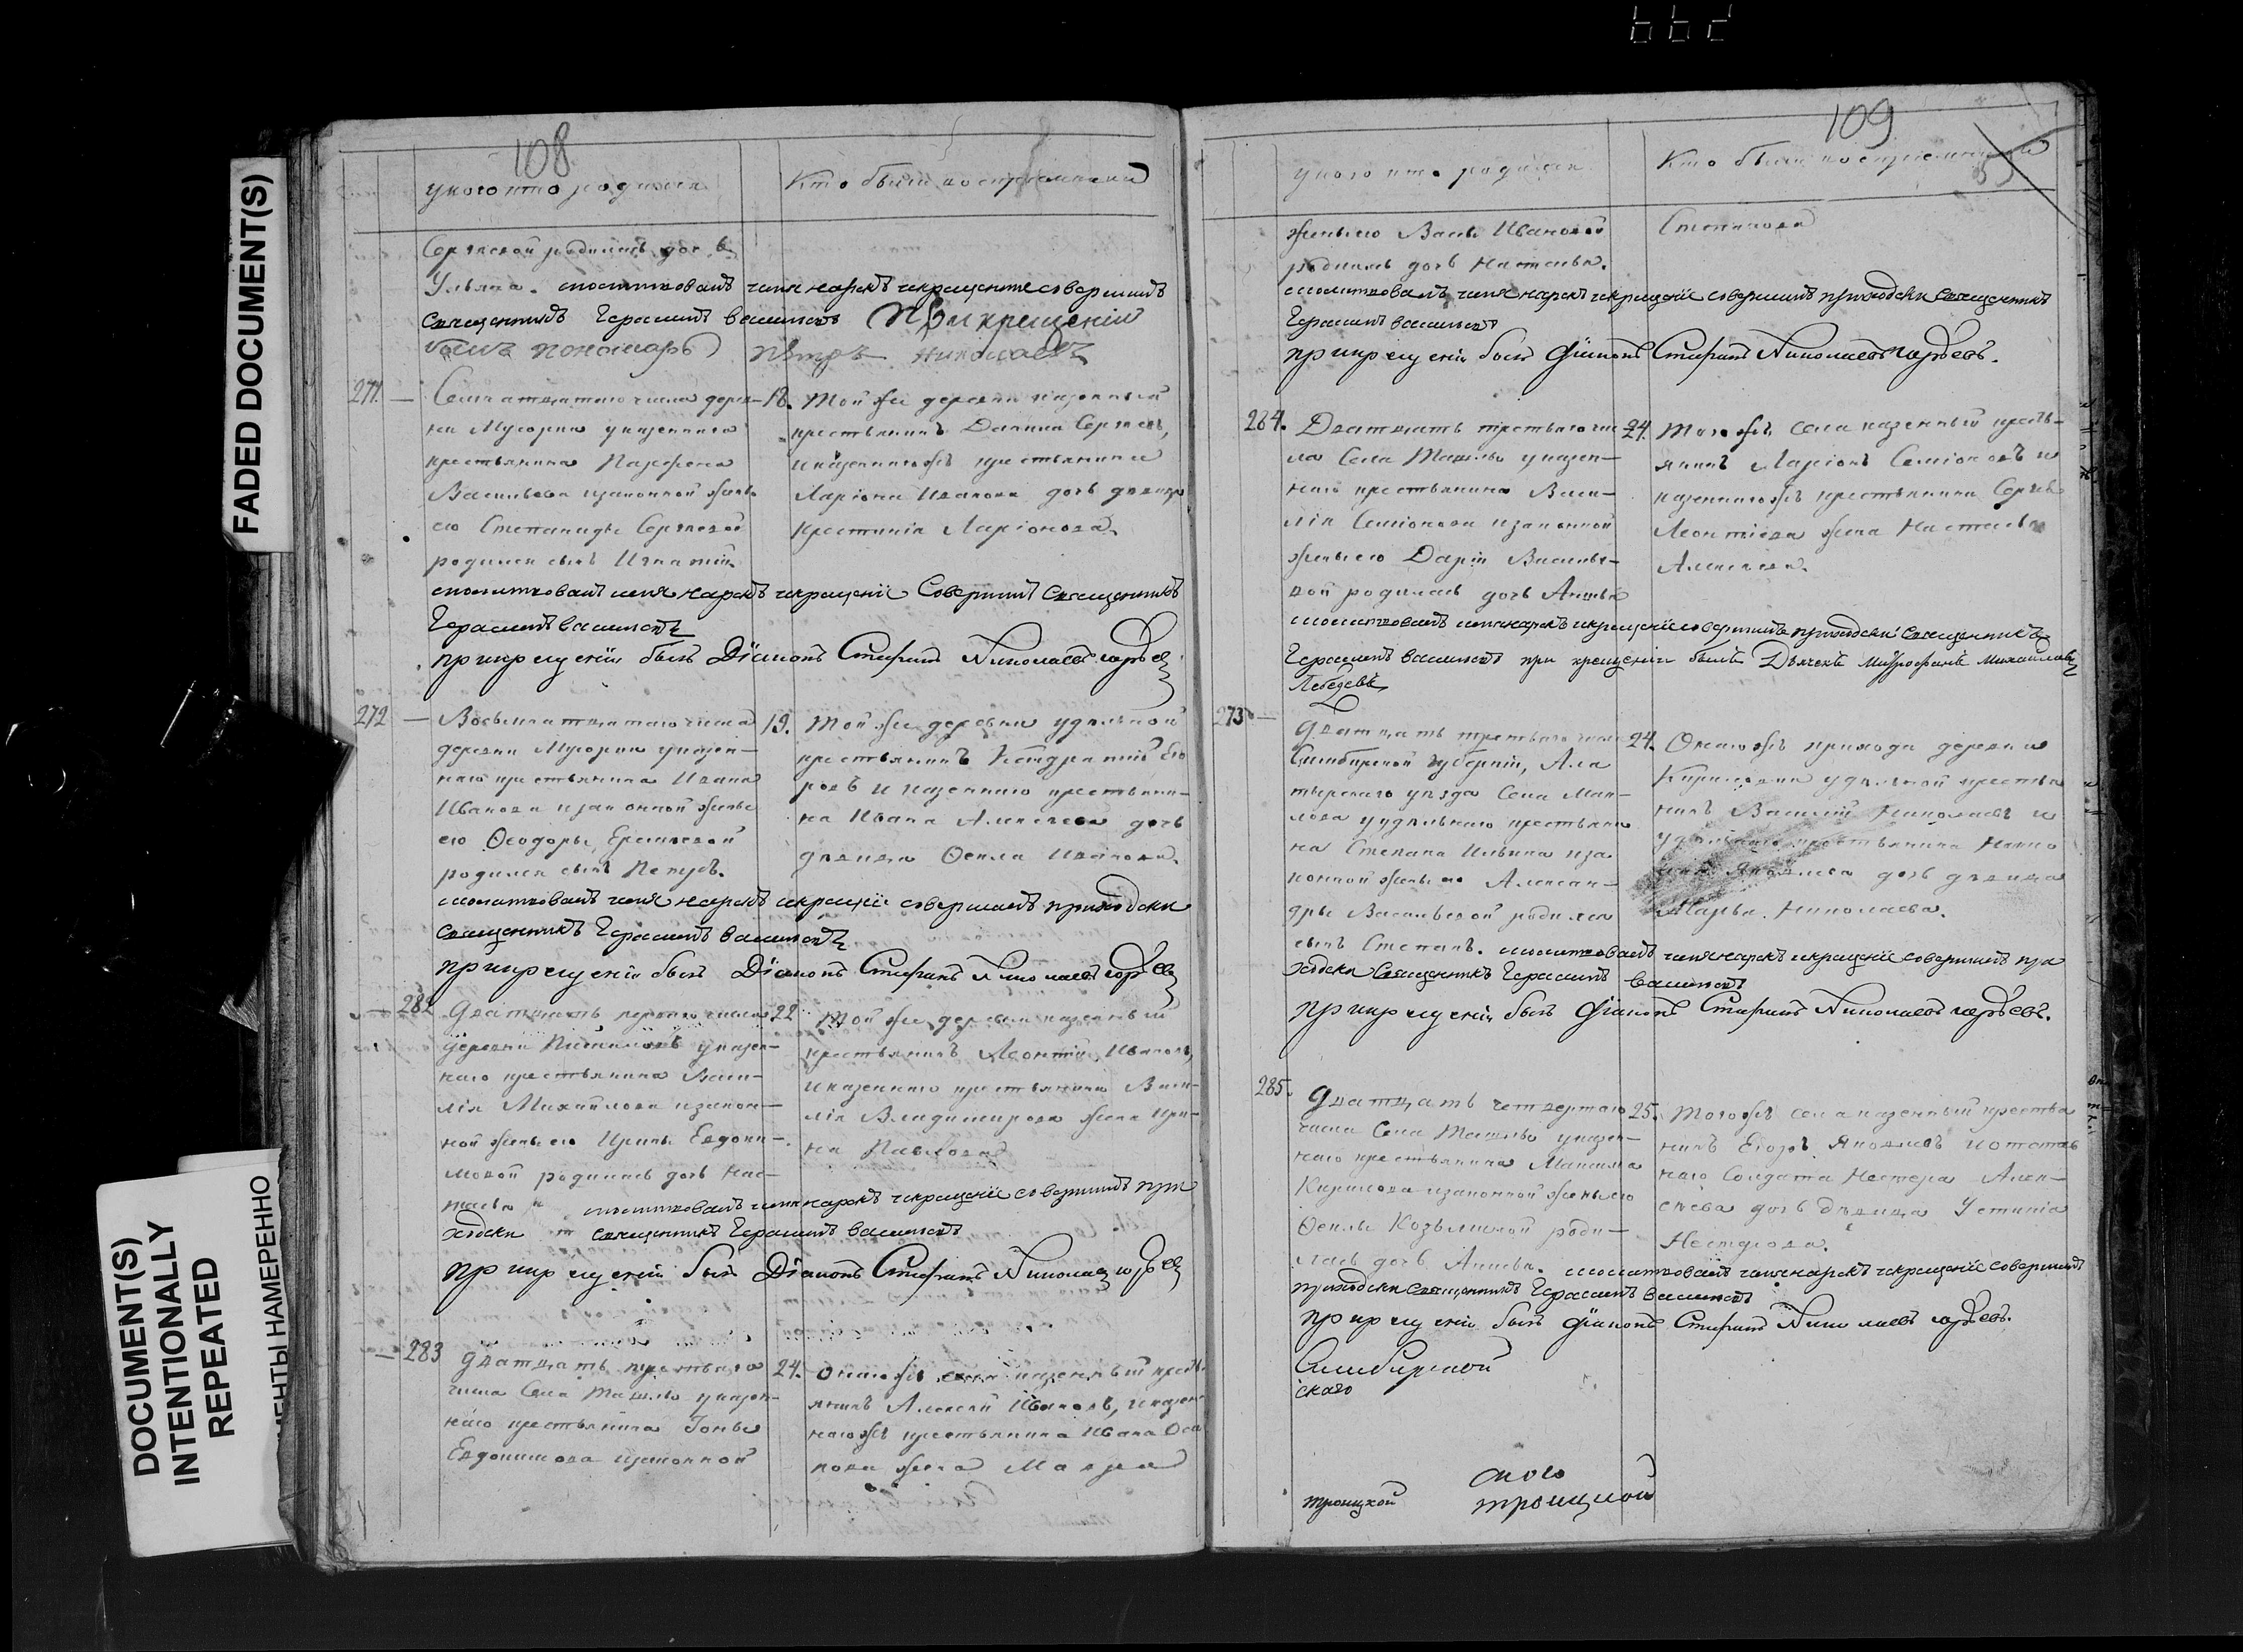 108
у кого кто родился
Кто были восприемники
Сергѣевой родилась дочь
Ульяна. молитвовалъ имя нарекъ и крещение совершилъ
священникъ Герасимъ Васильевъ При крещеніи
былъ пономарь Петръ Николаевъ
271 — Семнатцатого числа дерев-
ни Мусорки у казеннаго
крестьянина Парфена
Васильева и законной жены
его Степаниды Сергѣевой
родился сынъ Игнатій.
18. Той же деревни казенный
крестьянинъ Данила Сергѣевъ,
и казеннагожъ крестьянина
Ларіона Иванова дочь девица
Крестинія Ларіонова.
молитвовалъ имя нарекъ и крещеніе Совершилъ Священникъ
Герасимъ Васильевъ
при крещеніи былъ Діаконъ Стефанъ Николаевъ
272 — Восьмнатцатаго числа
деревни Мусорки у казен-
наго крестьянина Ивана
Иванова и законной жены
его Ѳеодоры Ермиловой
родился сынъ Петръ.
19. Той же деревни удѣльной
крестьянинъ Кондратій Его
ровъ и казеннаго крестьяни-
на Ивана Алексѣева дочь
дѣвица Ѳекла Иванова.
молитвовалъ имя нарекъ и крещеніе совершалъ приходски
священникъ Герасимъ Васильевъ
при крещеніи былъ Діаконъ Стефанъ Николаевъ
— 282 Дватцать перваго числа
деревни у казен-
наго крестьянина Васи-
лія Михайлова и закон-
ной жены его Ирины Евдоки-
мовой родилась дочь Нас-
тасья
22 Той же деревни казенный
крестьянинъ Леонтій Ивановъ,
и казеннаго крестьянина Васи-
лія Владимирова жена Ири-
на Павлова
молитвовалъ имя нарекъ и крещеніе совершилъ при
ходски священникъ Герасимъ Васильевъ
при крещеніи былъ Діаконъ Стефанъ Николаевъ
— 283 Дватцать третьяго
числа Села Ташлы у казен-
наго крестьянина Іоны
Евдокимова и законной
24. Оногожъ села казенный кресть-
янинъ Алексей Ивановъ, и казен-
нагожъ крестьянина Ивана
жена Мавра
109
у кого кто родился
Кто были восприемники
жены его Васы Ивановой
родилась дочь Настасья.
Степанова
молитвовалъ имя нарекъ и крещеніе совершилъ приходски священникъ
Герасимъ Васильевъ
при крещеніи былъ Діаконъ Стефанъ Николаевъ
284. Дватцать третьяго чис
ла Села Ташлы у казен-
наго крестьянина Васи-
лія Семіонова и законной
жены его Даріи Василье-
вой родилась дочь Анисья
24. Тогожъ села казенный кресть-
янинъ Ларіонъ Семіоновъ и
казеннагожъ крестьянина Сергѣя
Леонтіева жена Настасья
Алексѣева.
молитвовалъ имя нарекъ и крещеніе совершилъ приходски священникъ
Герасимъ Васильевъ при крещеніи былъ Дьячекъ Митрофанъ Михайловъ
Лебедевъ
273 — Дватцать третьяго числа
Симбирской губерніи, Ала
тырскаго уѣзда Села
у удѣльнаго крестьяни
на Степана Ильина и за
конной жены его Алексан-
дры Васильевой родился
сынъ Степанъ.
24. Оногожъ прихода деревни
Кириловки удѣльной крестья
нинъ Василій Николаевъ и
удѣльнаго крестьянина
Яковлева дочь дѣвица
Марья Николаева.
молитвовалъ имя нарекъ и крещеніе совершилъ при
ходски Священникъ Герасимъ Васильевъ
при крещеніи былъ Діаконъ Стефанъ Николаевъ
285. Дватцать четвертаго
числа Села Ташлы у казен-
наго крестьянина Максима
Кирилова и законной жены его
Ѳеклы Козьминой роди-
лась дочь Анисья.
25. Тогожъ села казенный крестья
нинъ Егоръ Яковлевъ и отстав
наго Солдата Нестера Алек-
сѣева дочь дѣвица Устинія
Нестерова.
молитвовалъ имя нарекъ и крещеніе совершилъ
приходски священникъ Герасимъ Васильевъ
при крещеніи былъ Діаконъ Стефанъ Николаевъ
Симбирской
скаго
оного
троицкой троицкой
FADED DOCUMENT(S)
DOCUMENT(S)
INTENTIONALLY
REPEATED
МЕНТЫ НАМЕРЕННО